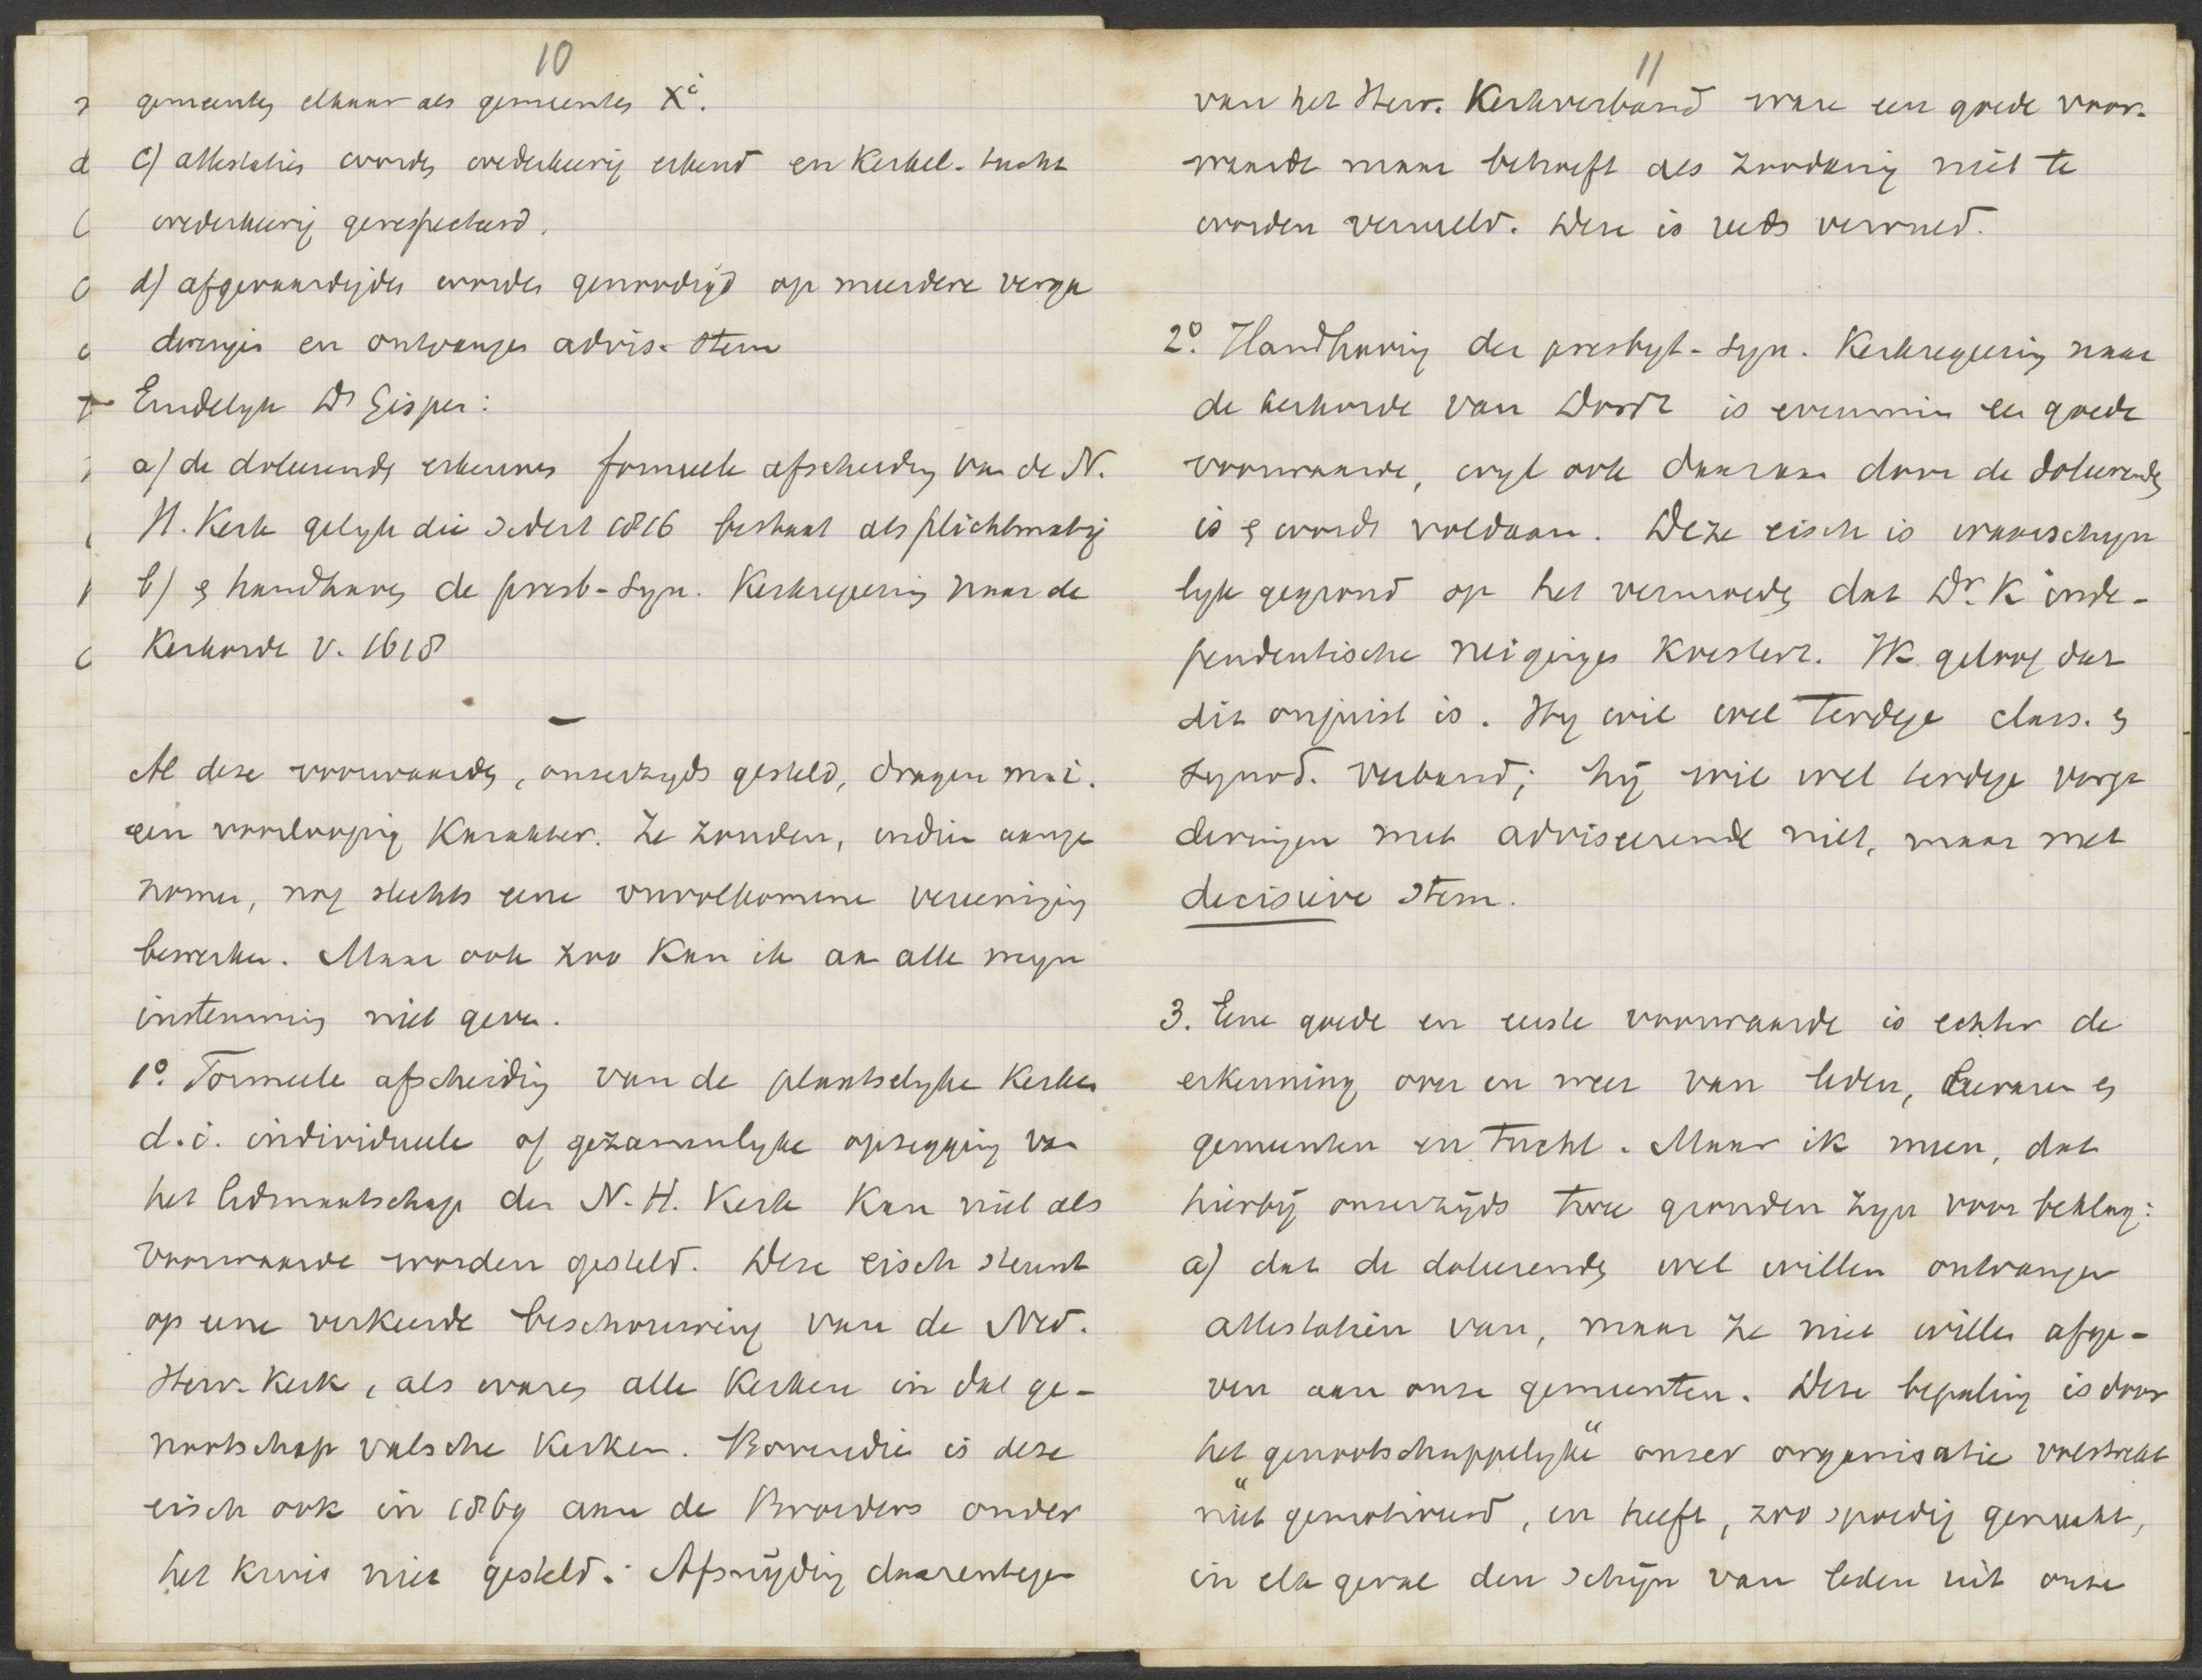 10
gemeentes elkaar als gemeentes X^i.
c) attestaties worden wederkeerig erkend en Kerkel. tucht
wederkeerig gerespecteerd.
d) afgevaardigden worden genoodigd op meerdere verga
deringen en ontvangen advis. stem
Eindelyk Ds Gispen:
a) de doleerenden erkennen formeele afscheiding van de N.
H. Kerk gelyk die sedert 1816 bestaat als plichtmatig
b) en handhaven de presb-syn. Kerkregeering naar de
Kerkorde v. 1618
–
Al deze voorwaarden, onzerzyds gesteld, dragen m.i.
een voorloopig Karakter. Ze zouden, indien aange
nomen, nog slechts eene onvolkomene vereeniging
bewerken. Maar ook zoo Kan ik aan alle myn
instemming niet geven.
1°. Formeele afscheiding van de plaatselyke Kerken
d.i. individueele of gezamenlyke opzegging van
het lidmaatschap der N. H. Kerk Kan niet als
voorwaarde worden gesteld. Deze eisch steunt
op eene verkeerde beschouwing van de Ned.
Herv. Kerk, als waren alle Kerken in dat ge-
nootschap valsche Kerken. Bovendien is deze
eisch ook in 1869 aan de Broeders onder
het Kruis niet gesteld. Afsnijding daarentegen
11
van het Herv. Kerkverband ware een goede voor-
waarde maar behoeft als zoodanig niet te
worden vermeld. Deze is reeds vervuld.
2°. Handhaving der presbyt-syn. Kerkregeering naar
de kerkorde van Dordt is evenmin een goede
voorwaarde, wyl ook daaraan door de doleerenden
is en wordt voldaan. Deze eisch is waarschyn
lyk gegrond op het vermoeden dat Dr. K inde-
pendentische neigingen Koestert. Ik geloof dat
dit onjuist is. Hy wil wel terdege class. en
synod. verband; hij wil wel terdege verga
deringen met adviseerende niet, maar met
decisieve stem.
3. Eene goede en eerste voorwaarde is echter de
erkenning over en weer van leden, leeraren en
gemeenten en tucht. Maar ik meen, dat
hierbij onzerzijds twee gronden zyn voor beklag:
a) dat de doleerenden wel willen ontvangen
attestatiën van, maar ze niet willen afge-
ven aan onze gemeenten. Deze bepaling is door
het „genootschappelyke“ onzer organisatie volstrekt
niet gemotiveerd, en heeft, zoo spoedig gemaakt,
in elk geval den schijn van leden uit onze